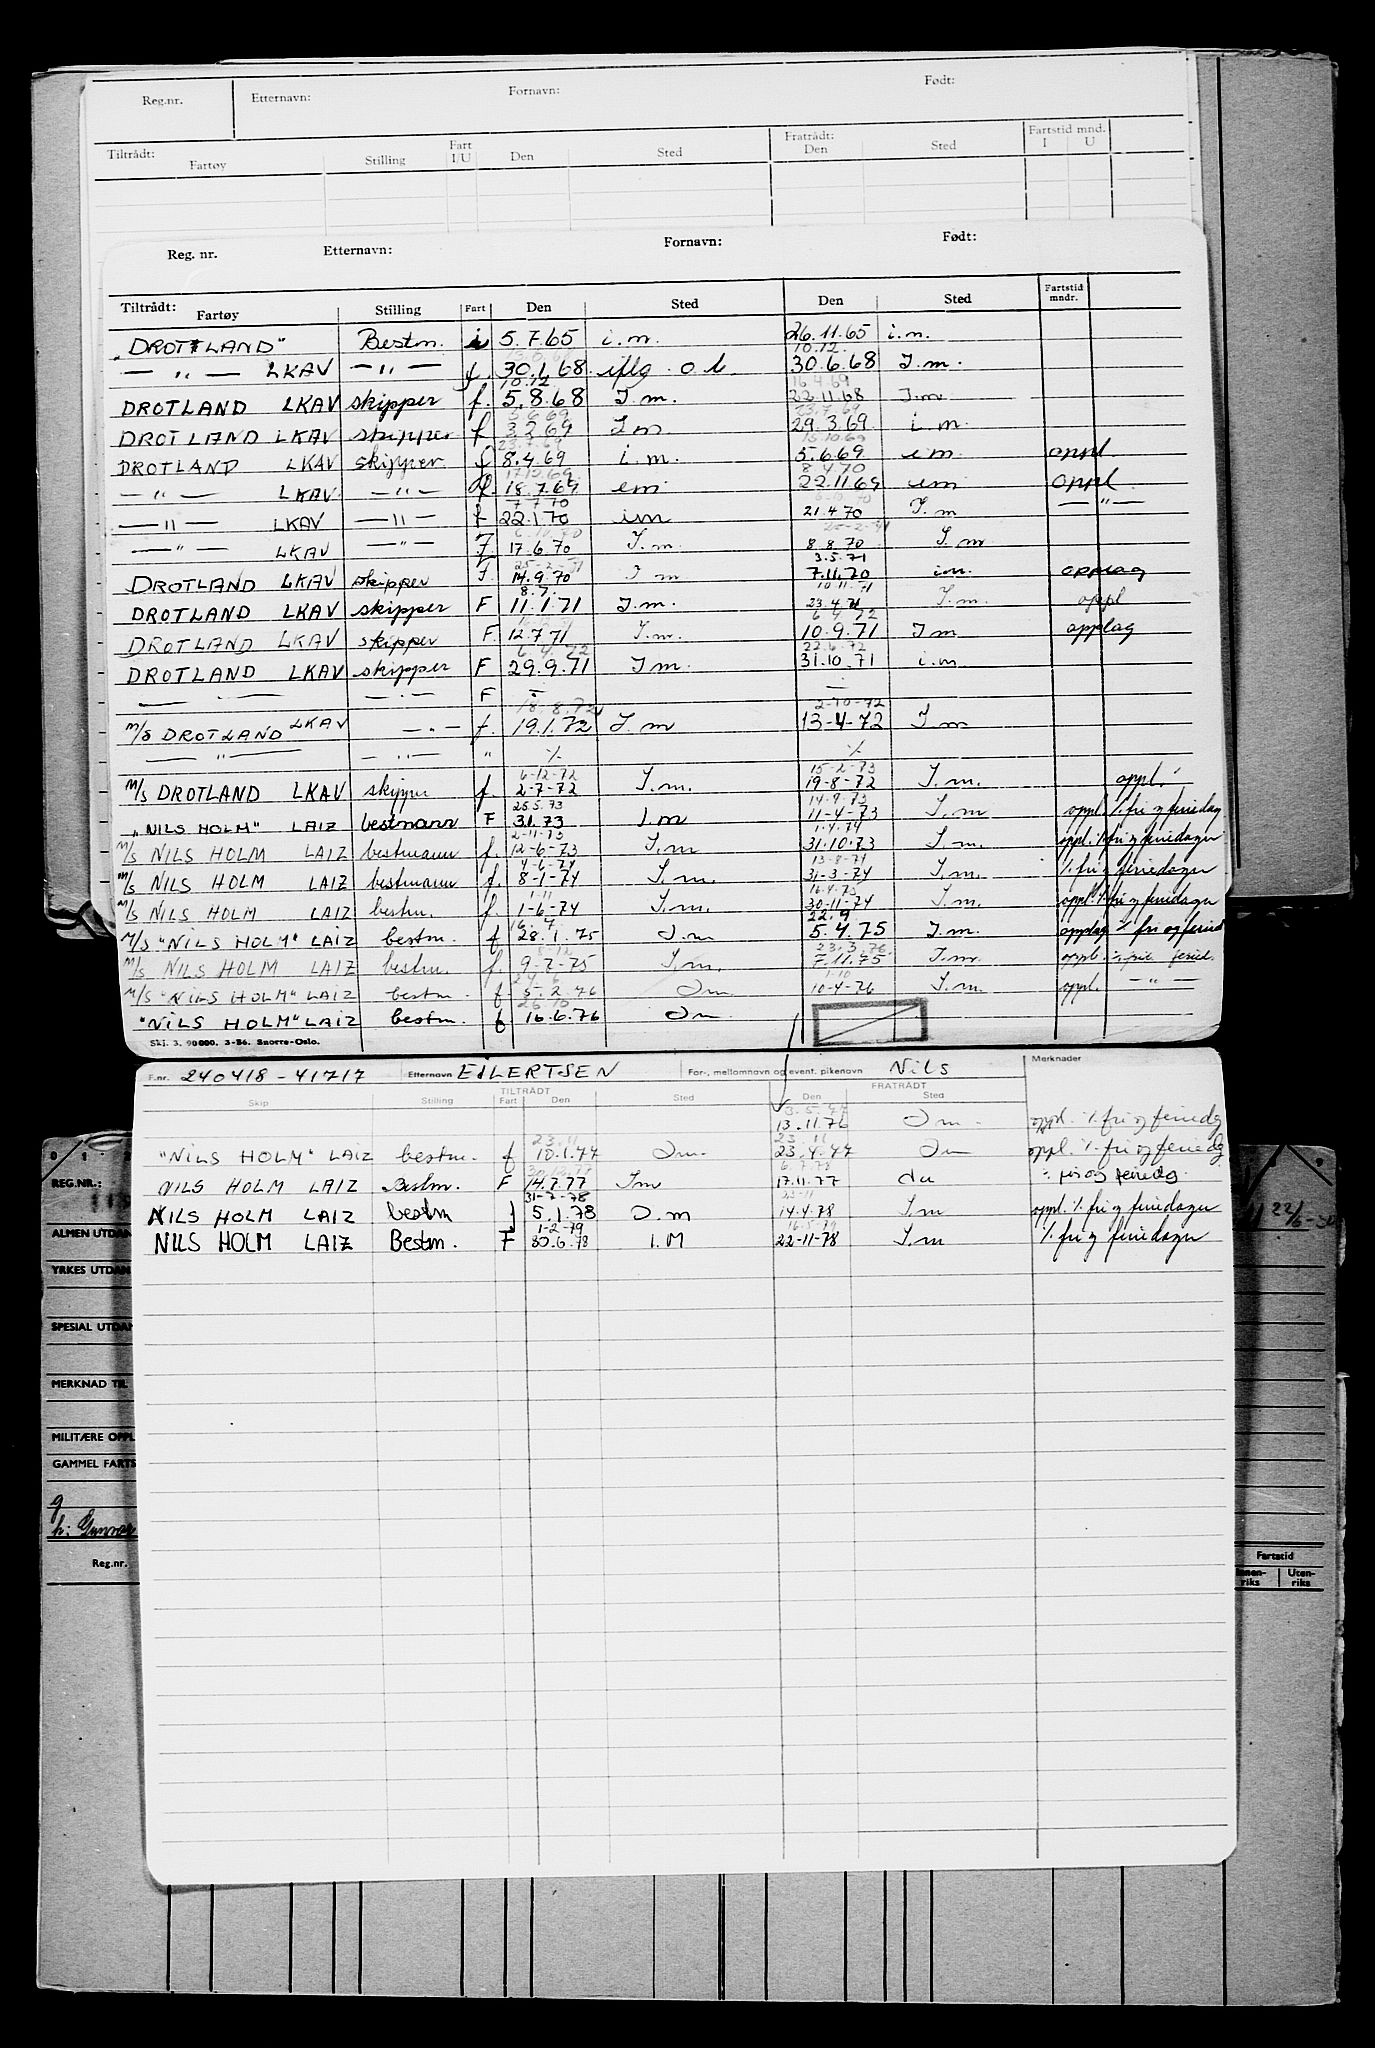 Reg.nr. Etternavn: Fornavn: Født:
Tiltrådt: Fratrådt: Fartstid mnd.
Fartøy Stilling Fart I/U Den Sted Den Sted I U
Reg. nr. Etternavn: Fornavn: Født:
Tiltrådt: Fartstid mndr.
Fartøy Stilling Fart Den Sted Den Sted
"DROTLAND" Bestm. i 5.7.65 i.m. 26.11.65 i.m.
10.12
— " — LKAV — " — f. 30.1.68 iflg. o.b. 30.6.68 I.m.
10.12 16.4.69
DROTLAND LKAV skipper f. 5.8.68 I.m. 22.11.68 I.m
5.6.69 23.7.69
DROTLAND LKAV skipper f 3.2.69 Im 29.3.69 i.m.
15.10.69
DROTLAND LKAV skipper. f 8.4.69 i.m. 5.6.69 im oppl.
17.10.69 8.4.70
— " — LKAV — " — f. 18.7.69 im 22.11.69 im oppl.
7.7.70
— " — LKAV — " — f 22.1.70 im 21.4.70 I.m — " —
25-2-71
— " — LKAV — " — F. 17.6.70 I.m. 8.8.70 I.m
25-2-71 3.5.71
DROTLAND LKAV skipper F. 14.9.70 I m 7.11.70 i.m. opplag
8.7. 10.11.71
DROTLAND LKAV skipper F 11.1.71 I.m. 23.4.71 I.m. oppl
6.4.72
DROTLAND LKAV skipper F. 12.7.71 I.m. 10.9.71 I m opplag
6.4.72 22.6.72
DROTLAND LKAV skipper F 29.9.71 I m. 31.10.71 i.m
— . — — . — F — —
18.8.72 2-10-72
M/S DROTLAND LKAV — " — f. 19.1.72 I.m 13-4-72 I m
— " — — " — " % %
6-12-72 15-2-73
M/S DROTLAND LKAV skipper f. 2-7-72 I.m. 19-8-72 I.m. oppl.
25.5.73 14.9.73
"NILS HOLM" LAIZ bestmann F 3.1.73 I.m 11-4-73 I.m oppl. % fri og feriedag
2-11-73 1.4.74
M/S NILS HOLM LAIZ bestmann f. 12-6-73 I.m 31.10.73 I m. oppl. % fri og feriedager
4-6-74 13-8-74
M/S NILS HOLM LAIZ bestmann f. 8-1-74 I.m. 31-3-74 I.m. % fri og feriedager
1-11 16.4.75
M/S NILS HOLM LAIZ bestm. f. 1-6-74 I.m. 30-11-74 I.m. oppl. % fri og feriedager
16.7 22.9
M/S "NILS HOLM" LAIZ bestm. f 28.1.75 I.m 5.4.75 I.m. opplag % fri og feried
8-12 23.3.76
M/S NILS HOLM LAIZ bestm. f. 9-7-75 I.m. 7.11.75 I.m. oppl. % fri feried.
24.6 1-10
M/S "NILS HOLM" LAIZ bestm. f 5.2.76 Im 10-4-76 I.m. oppl. — " —
26.10
"NILS HOLM" LAIZ bestm. f 16.6.76 Im
Skj. 3. 90000. 3-56. Snorre-Oslo.
F.nr. 240418-41717 Etternavn EILERTSEN For-, mellomnavn og event. pikenavn Nils Merknader
TILTRÅDT FRATRÅDT
Skip Stilling Fart Den Sted Den Sted
3.5.77
13.11.76 Im oppl. % fri og feriedg
23.11 23.11
"NILS HOLM" LAIZ bestm. f 10.1.77 Im 23.4.77 Im oppl. % fri og feriedg
6.7.78
NILS HOLM LAIZ Bestm. F 14.7.77 Im 17.11.77 do % fri og feriedg
31-7-78 23-11
NILS HOLM LAIZ bestm f 5.1.78 I.m 14.4.78 I.m oppl. % fri og feriedager
1-2-79 16.5.79
NILS HOLM LAIZ Bestm. F 30.6.78 I.M 22-11-78 I.m % fri og feriedager
REG.NR.:
ALMEN UTDAN
YRKES UTDAN
SPESIAL UTDAN
MERKNAD TIL
MILITÆRE OPPL
GAMMEL FARTS
Reg.nr. Fartstid
Innen-riks Uten-riks